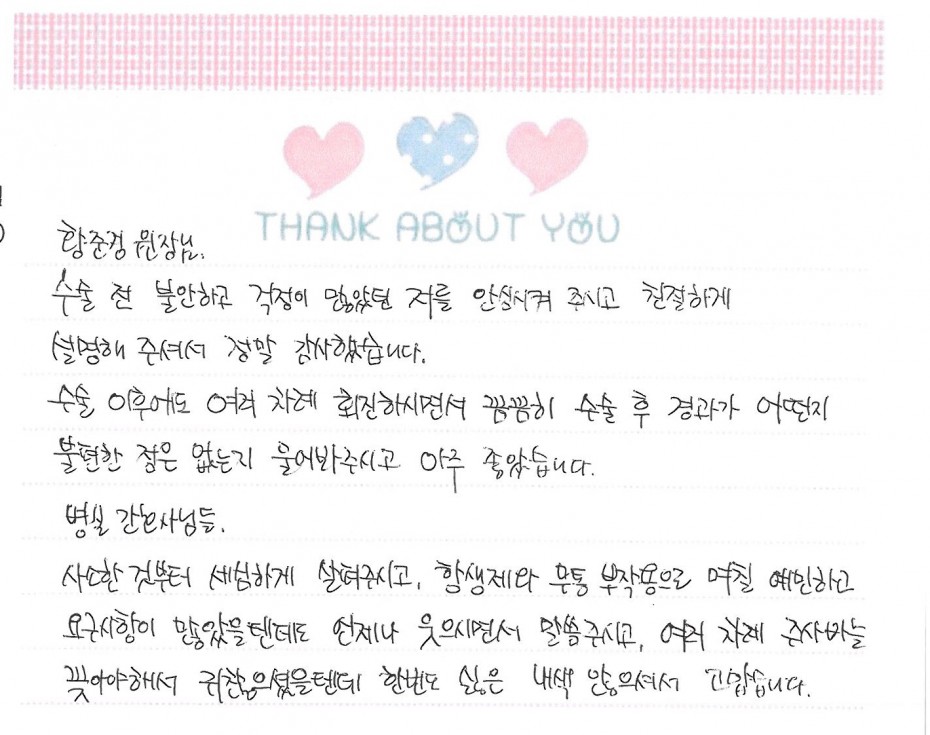 THANK ABOUT YOU
황준경 원장님.
수술 전 불안하고 걱정이 많았던 저를 안심시켜 주시고 친절하게
설명해 주셔서 정말 감사했습니다.
수술 이후에도 여러 차례 회진하시면서 꼼꼼히 수술 후 경과가 어떤지
불편한 점은 없는지 물어봐주시고 아주 좋았습니다.
병실 간호사님들.
사소한 것부터 세심하게 살펴주시고, 항생제와 무통 부작용으로 며칠 예민하고
요구사항이 많았을텐데도 언제나 웃으시면서 말씀주시고, 여러 차례 주사바늘
꽂아야해서 귀찮으셨을텐데 한번도 싫은 내색 않으셔서 고맙습니다.